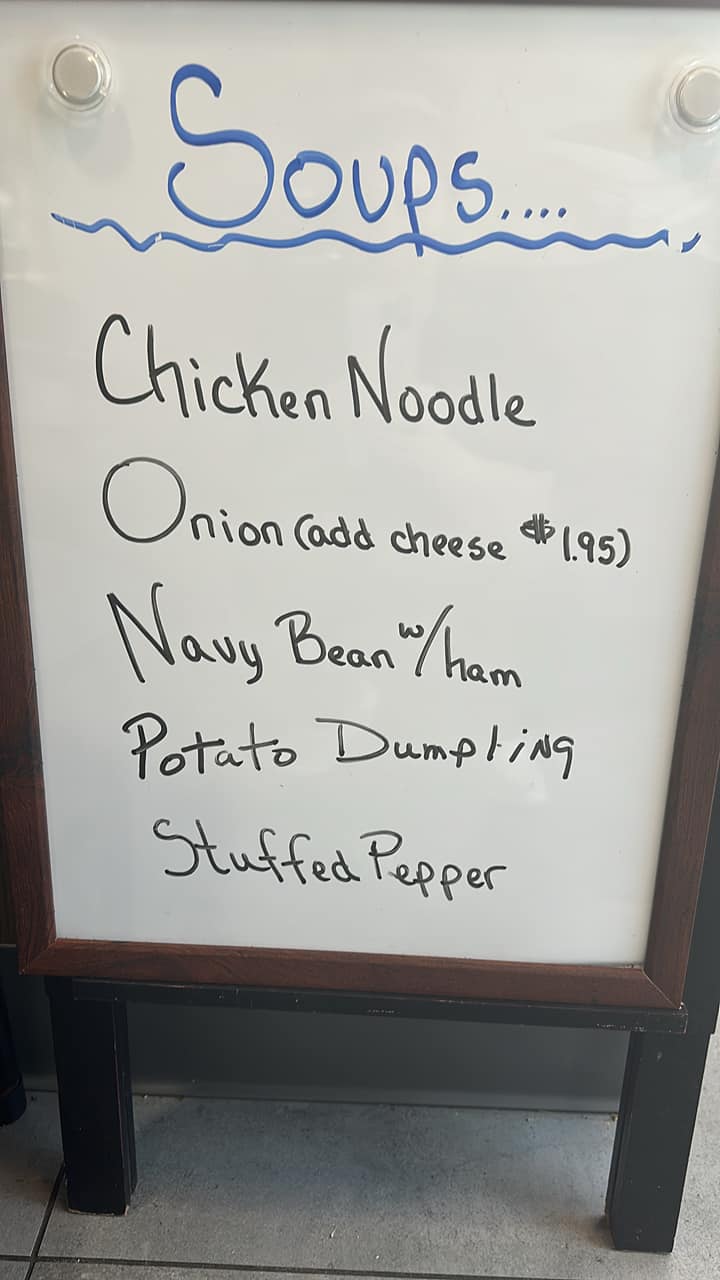 Soups....
Chicken Noodle
Onion (add cheese $1.95)
Navy Bean w/ham
Potato Dumpling
Stuffed Pepper